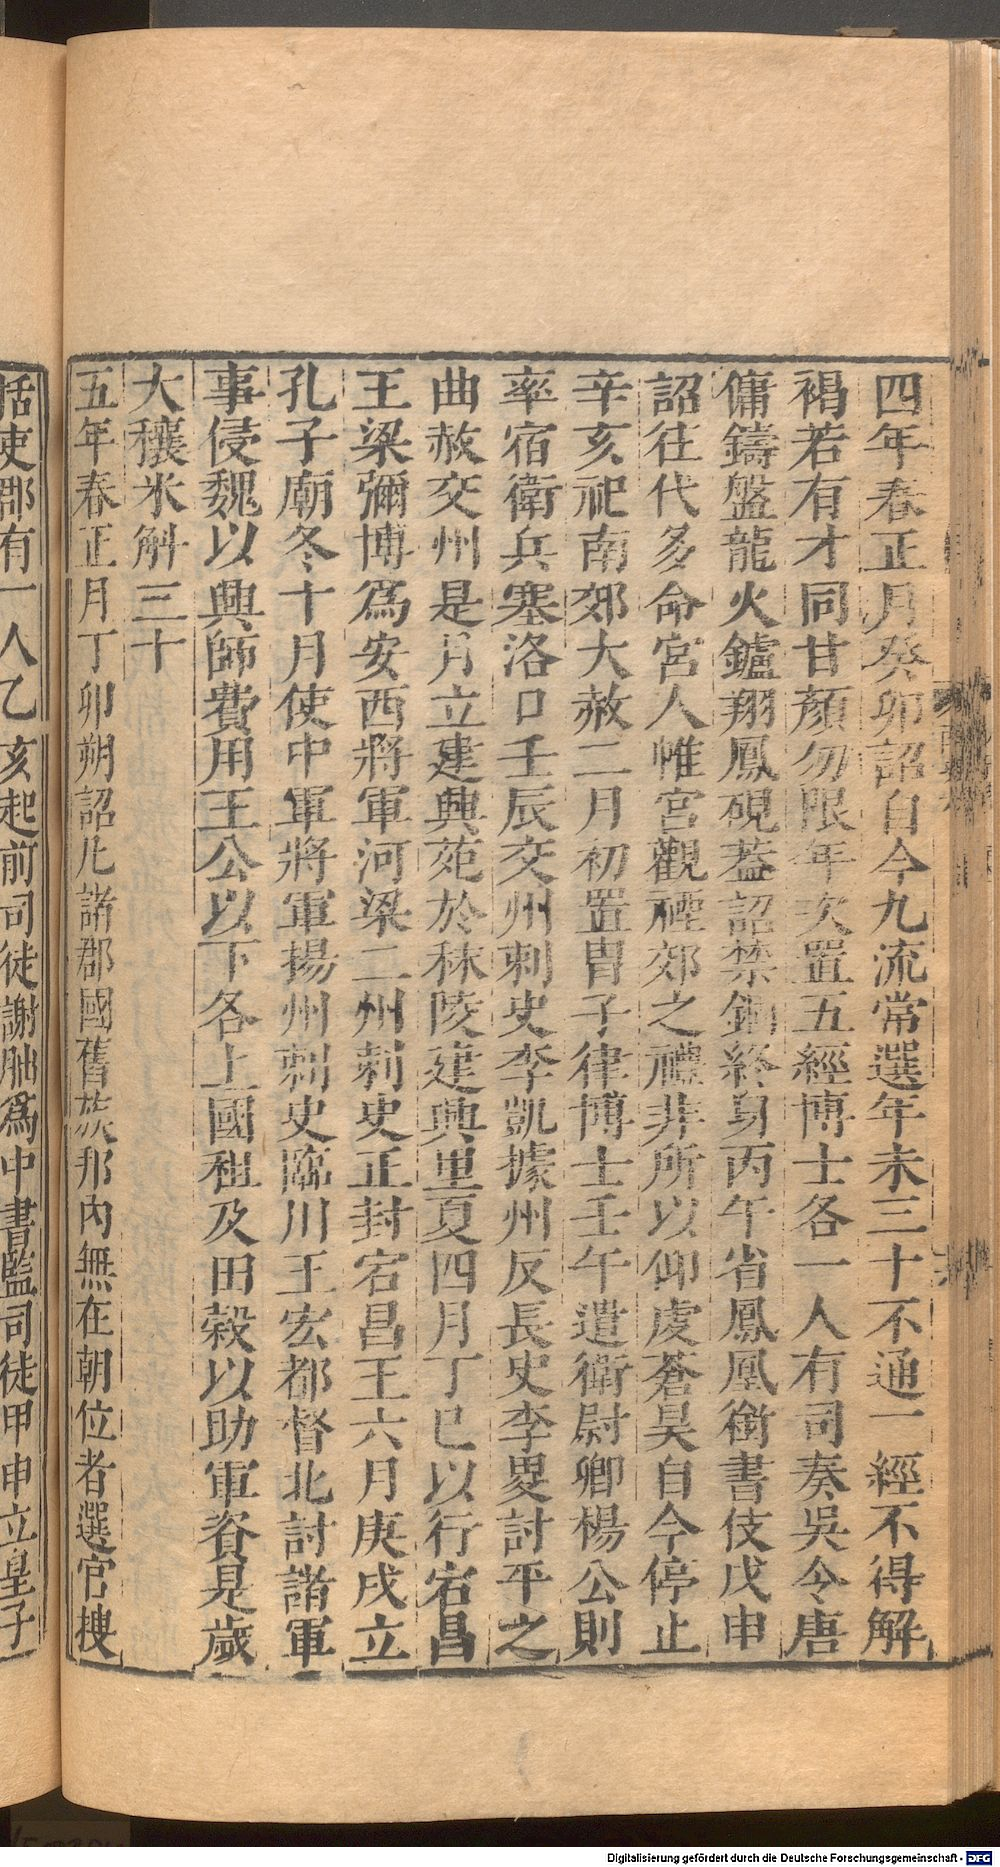 四年春正月癸卯詔自今九流常選年未三十不通一經不得解
褐若有才同甘顏勿限年次置五經博士各一人有司奏吳令唐
傭鑄盤龍火鑪翔鳳硯蓋詔禁錮終身丙午省鳳凰銜書伎戊申
詔往代多命宮人帷宮觀禋郊之禮非所以仰虔蒼昊自今停止
辛亥祀南郊大赦二月初置胄子律博士壬午遣衛尉卿楊公則
率宿衛兵塞洛口壬辰交州刺史李凱據州反長史李畟討平之
曲赦交州是月立建興苑於秣陵建興里夏四月丁巳以行宕昌
王梁彌博爲安西將軍河梁二州刺史正封宕昌王六月庚戌立
孔子廟冬十月使中軍將軍揚州刺史臨川王宏都督北討諸軍
事侵魏以興師費用王公以下各上國租及田榖以助軍資是歲
大穰米斛三十
五年春正月丁卯朔詔凡諸郡國舊族邦內無在朝位者選官搜
括使郡有一人乙亥起前司徒謝朏爲中書監司徒甲申立皇子
Digitalisierung gefördert durch die Deutsche Forschungsgemeinschaft - DFG